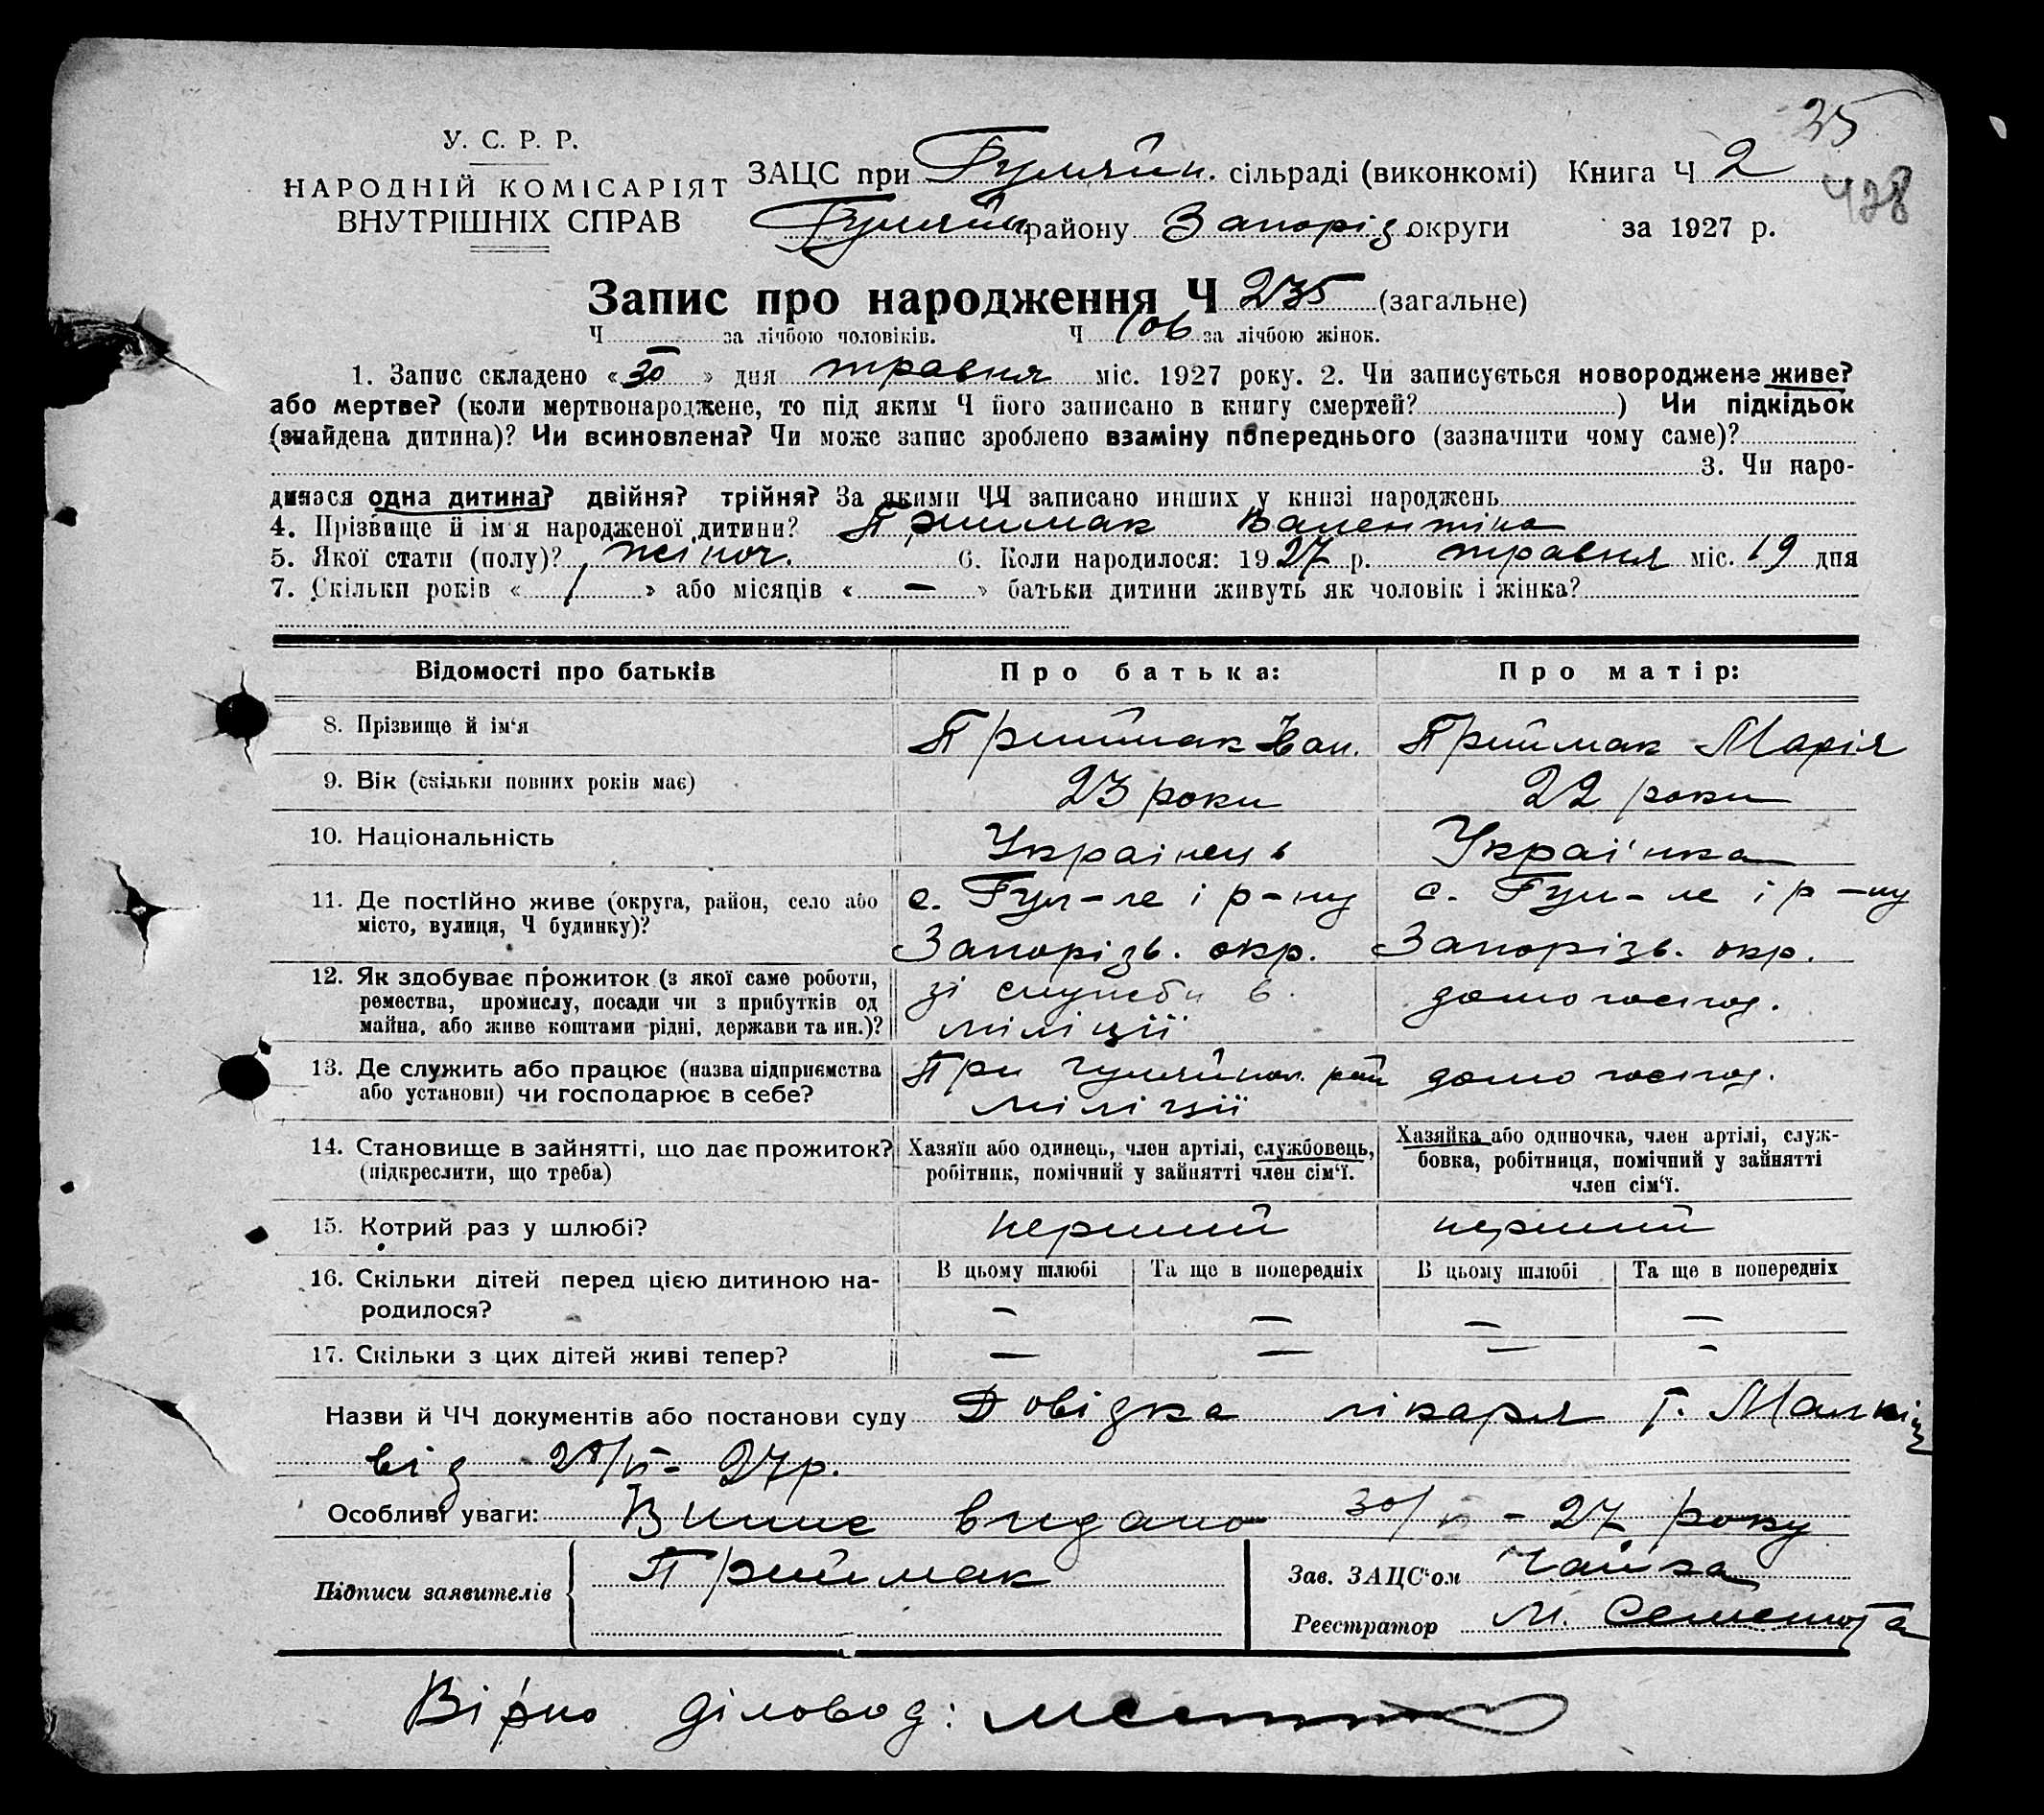 35
428
У. С. Р. Р.
НАРОДНІЙ КОМІСАРІЯТ
ВНУТРІШНІХ СПРАВ
ЗАЦС при Гуляйп. сільраді (виконкомі) Книга Ч 2
Гуляйп району Запоріз округи за 1927 р.
Запис про народження Ч 235 (загальне)
Ч за лічбою чоловіків. Ч 106 за лічбою жінок.
1. Запис складено «30» дня травня міс. 1927 року. 2. Чи записується новороджене живе?
або мертве? (коли мертвонароджене, то під яким Ч його записано в книгу смертей?) Чи підкідьок
(знайдена дитина)? Чи всиновлена? Чи може запис зроблено взаміну попереднього (зазначити чому саме)?
3. Чи наро-
дилася одна дитина? двійня? трійня? За якими ЧЧ записано инших у книзі народжень
4. Прізвище й ім'я народженої дитини? Приймак Валентіна
5. Якої стати (полу)? жіноч. 6. Коли народилося: 1927 р. травня міс. 19 дня
7. Скільки років « 1 » або місяців « — » батьки дитини живуть як чоловік і жінка?
Відомості про батьків Про батька: Про матір:
8. Прізвище й ім'я Приймак Іван. Приймак Марія
9. Вік (скільки повних років має) 23 роки 22 роки
10. Національність Українець Українка
11. Де постійно живе (округа, район, село або місто, вулиця, Ч будинку)?
с. Гул-ле і р-ну с. Гул-ле і р-ну
Запорізь. окр. Запорізь. окр.
12. Як здобуває прожиток (з якої саме роботи,
ремества, промислу, посади чи з прибутків од
майна, або живе коштами рідні, держави та ин.)?
зі служби в. домогоспод.
міліції
13. Де служить або працює (назва підприємства
або установи) чи господарює в себе?
При гуляйпол. рай домогоспод.
міліції
14. Становище в зайнятті, що дає прожиток?
(підкреслити, що треба)
Хазяїн або одинець, член артілі, службовець,
робітник, помічний у зайнятті член сім'ї.
Хазяйка або одиночка, член артілі, служ-
бовка, робітниця, помічний у зайнятті
член сім'ї.
15. Котрий раз у шлюбі? перший перший
16. Скільки дітей перед цією дитиною на-
родилося?
В цьому шлюбі Та ще в попередніх В цьому шлюбі Та ще в попередніх
— — — —
17. Скільки з цих дітей живі тепер? — — — —
Назви й ЧЧ документів або постанови суду Довідка лікаря Г.
від 27р.
Особливі уваги: Випис видано 30/V - 27 року
Підписи заявителів Приймак
Зав. ЗАЦС'ом
Реєстратор М.
Вірно діловод: